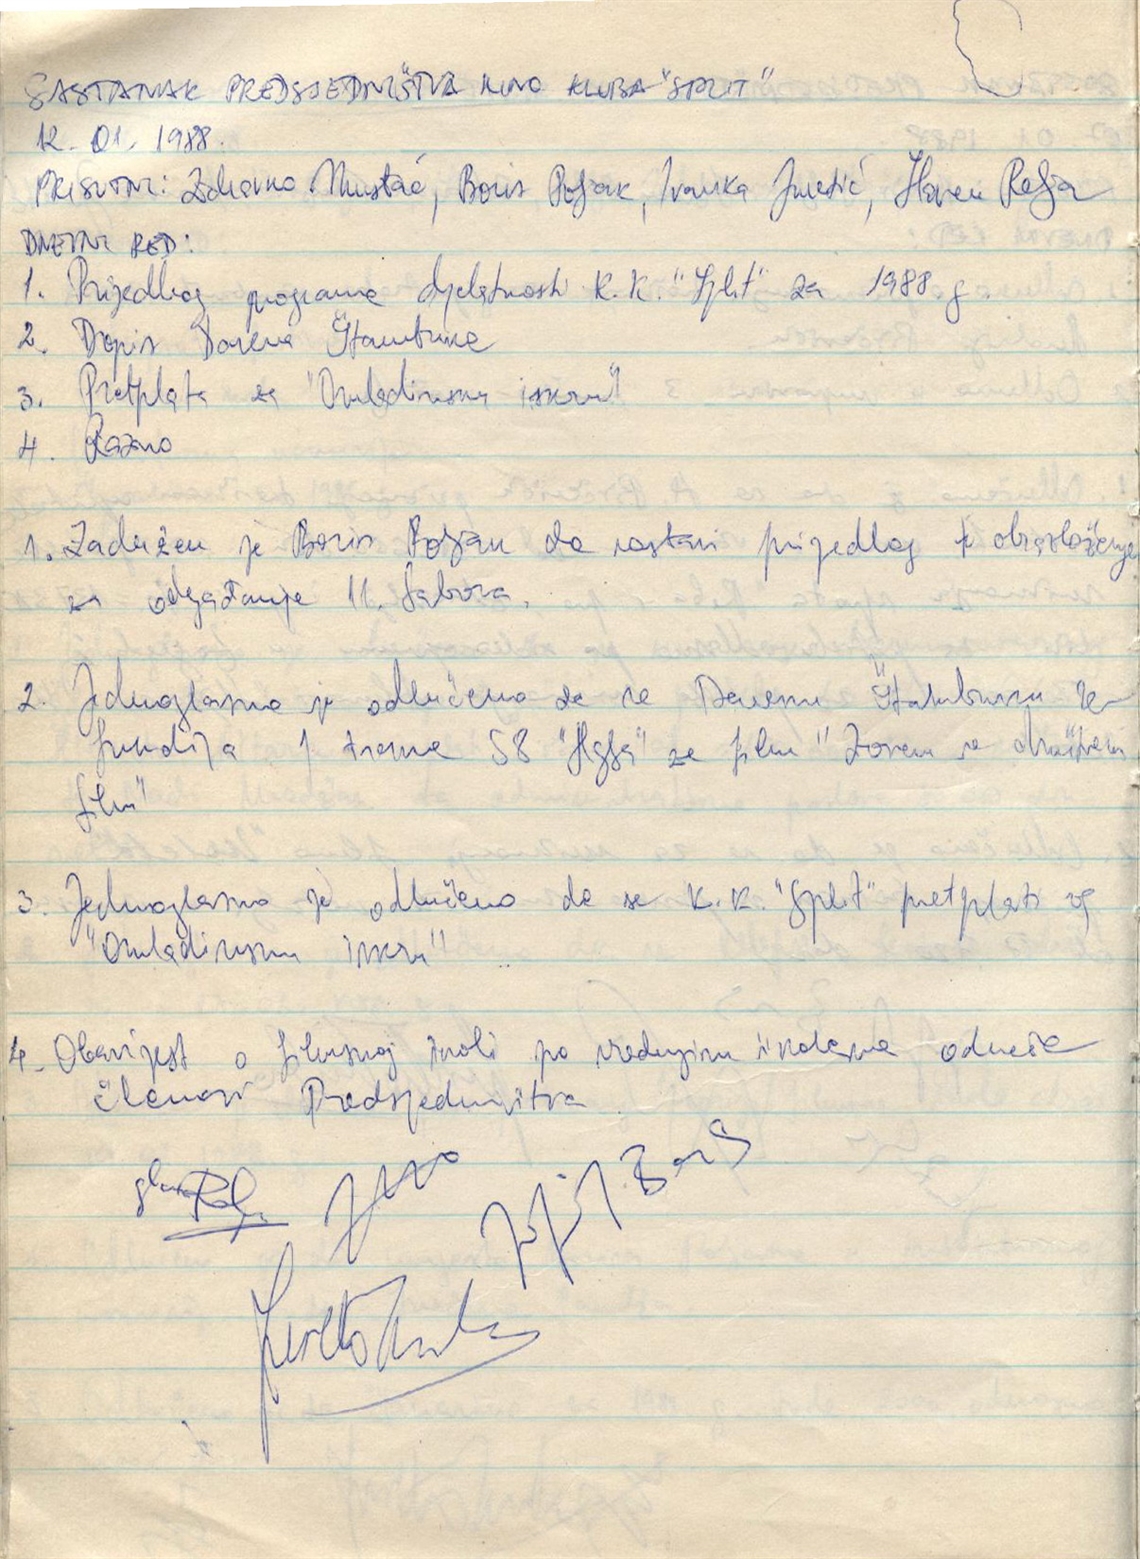 SASTANAK PREDSJEDNIŠTVA KINO KLUBA "SPLIT"
12. 01. 1988.
PRISUTNI: Zdravko Mustać, Boris Poljak, Ivanka Juretić, Slaven Relja
DNEVNI RED:
1. Prijedlog programa djelatnosti K.K. "Split" za 1988 g.
2. Dopis Davora Štambuka
3. Pretplata za "Omladinsku iskru"
4. Razno
1. Zadužen je Boris Poljak da sastavi prijedlog i obrazloženje
za održavanje 11. Sabora.
2. Jednoglasno je odlučeno da se Štambuku re-
fundira 1 S8 "Agfa" za film "Zovem se društveni
film"
3. Jednoglasno je odlučeno da se K.K. "Split" pretplati
"Omladinsku iskru"
4. Obavijest o filmskoj školi po srednjim školama odnese
članovi Predsjedništva